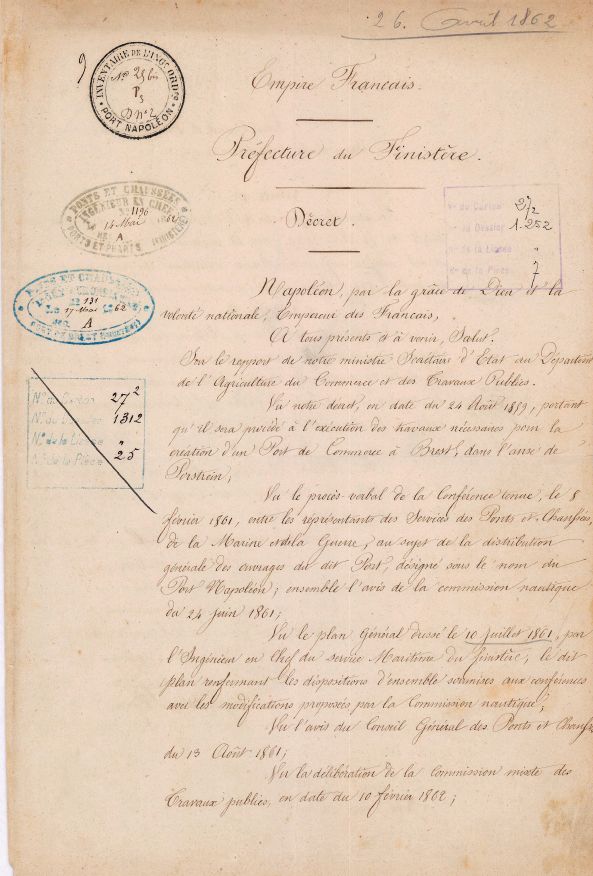 26. Avril 1862
9
INVENTAIRE DE L'INGR ORDRE
No 256
P5
D No 2
PORT NAPOLÉON
Empire Français.
Préfecture du Finistère.
PONTS ET CHAUSSÉES
INGÉNIEUR EN CHEF
No 1196
14 Mai 1862
A
PORTS ET PHARES FINISTÈRE
No du Carton 27 2
No du Dossier 1.252
No de la Liasse "
No de la Pièce 7
Décret.
PONTS ET CHAUSSÉES
No 131
Le 17 Mai 1862
A
Napoléon, par la grâce de Dieu et la
volonté nationale, Empereur des Français,
A tous présents et à venir, Salut.
Sur le rapport de notre ministre Secrétaire d'Etat au Département
de l'Agriculture du Commerce et des Travaux Publics.
No du Carton 27 2
No du Dossier 1312
No de la Liasse "
No de la Pièce 25
Vu notre décret, en date du 24 Août 1859, portant
qu'il sera procédé à l'exécution des travaux nécessaires pour la
création d'un Port de Commerce à Brest, dans l'anse de
Porstrein;
Vu le procès-verbal de la Conférence tenue, le 8
février 1861, entre les représentants des Services des Ponts et Chaussées,
de la Marine et de la Guerre, au sujet de la distribution
générale des ouvrages du dit Port, désigné sous le nom du
Port Napoléon; ensemble l'avis de la commission nautique
du 24 juin 1861;
Vu le plan Général dressé le 10 juillet 1861, par
l'Ingénieur en Chef du service Maritime du finistère, le dit
plan renfermant les dispositions d'ensemble soumises aux conférences
avec les modifications proposées par la Commission nautique;
Vu l'avis du Conseil Général des Ponts et Chaussées
du 13 Août 1861;
Vu la délibération de la Commission mixte des
Travaux publics, en date du 10 février 1862;